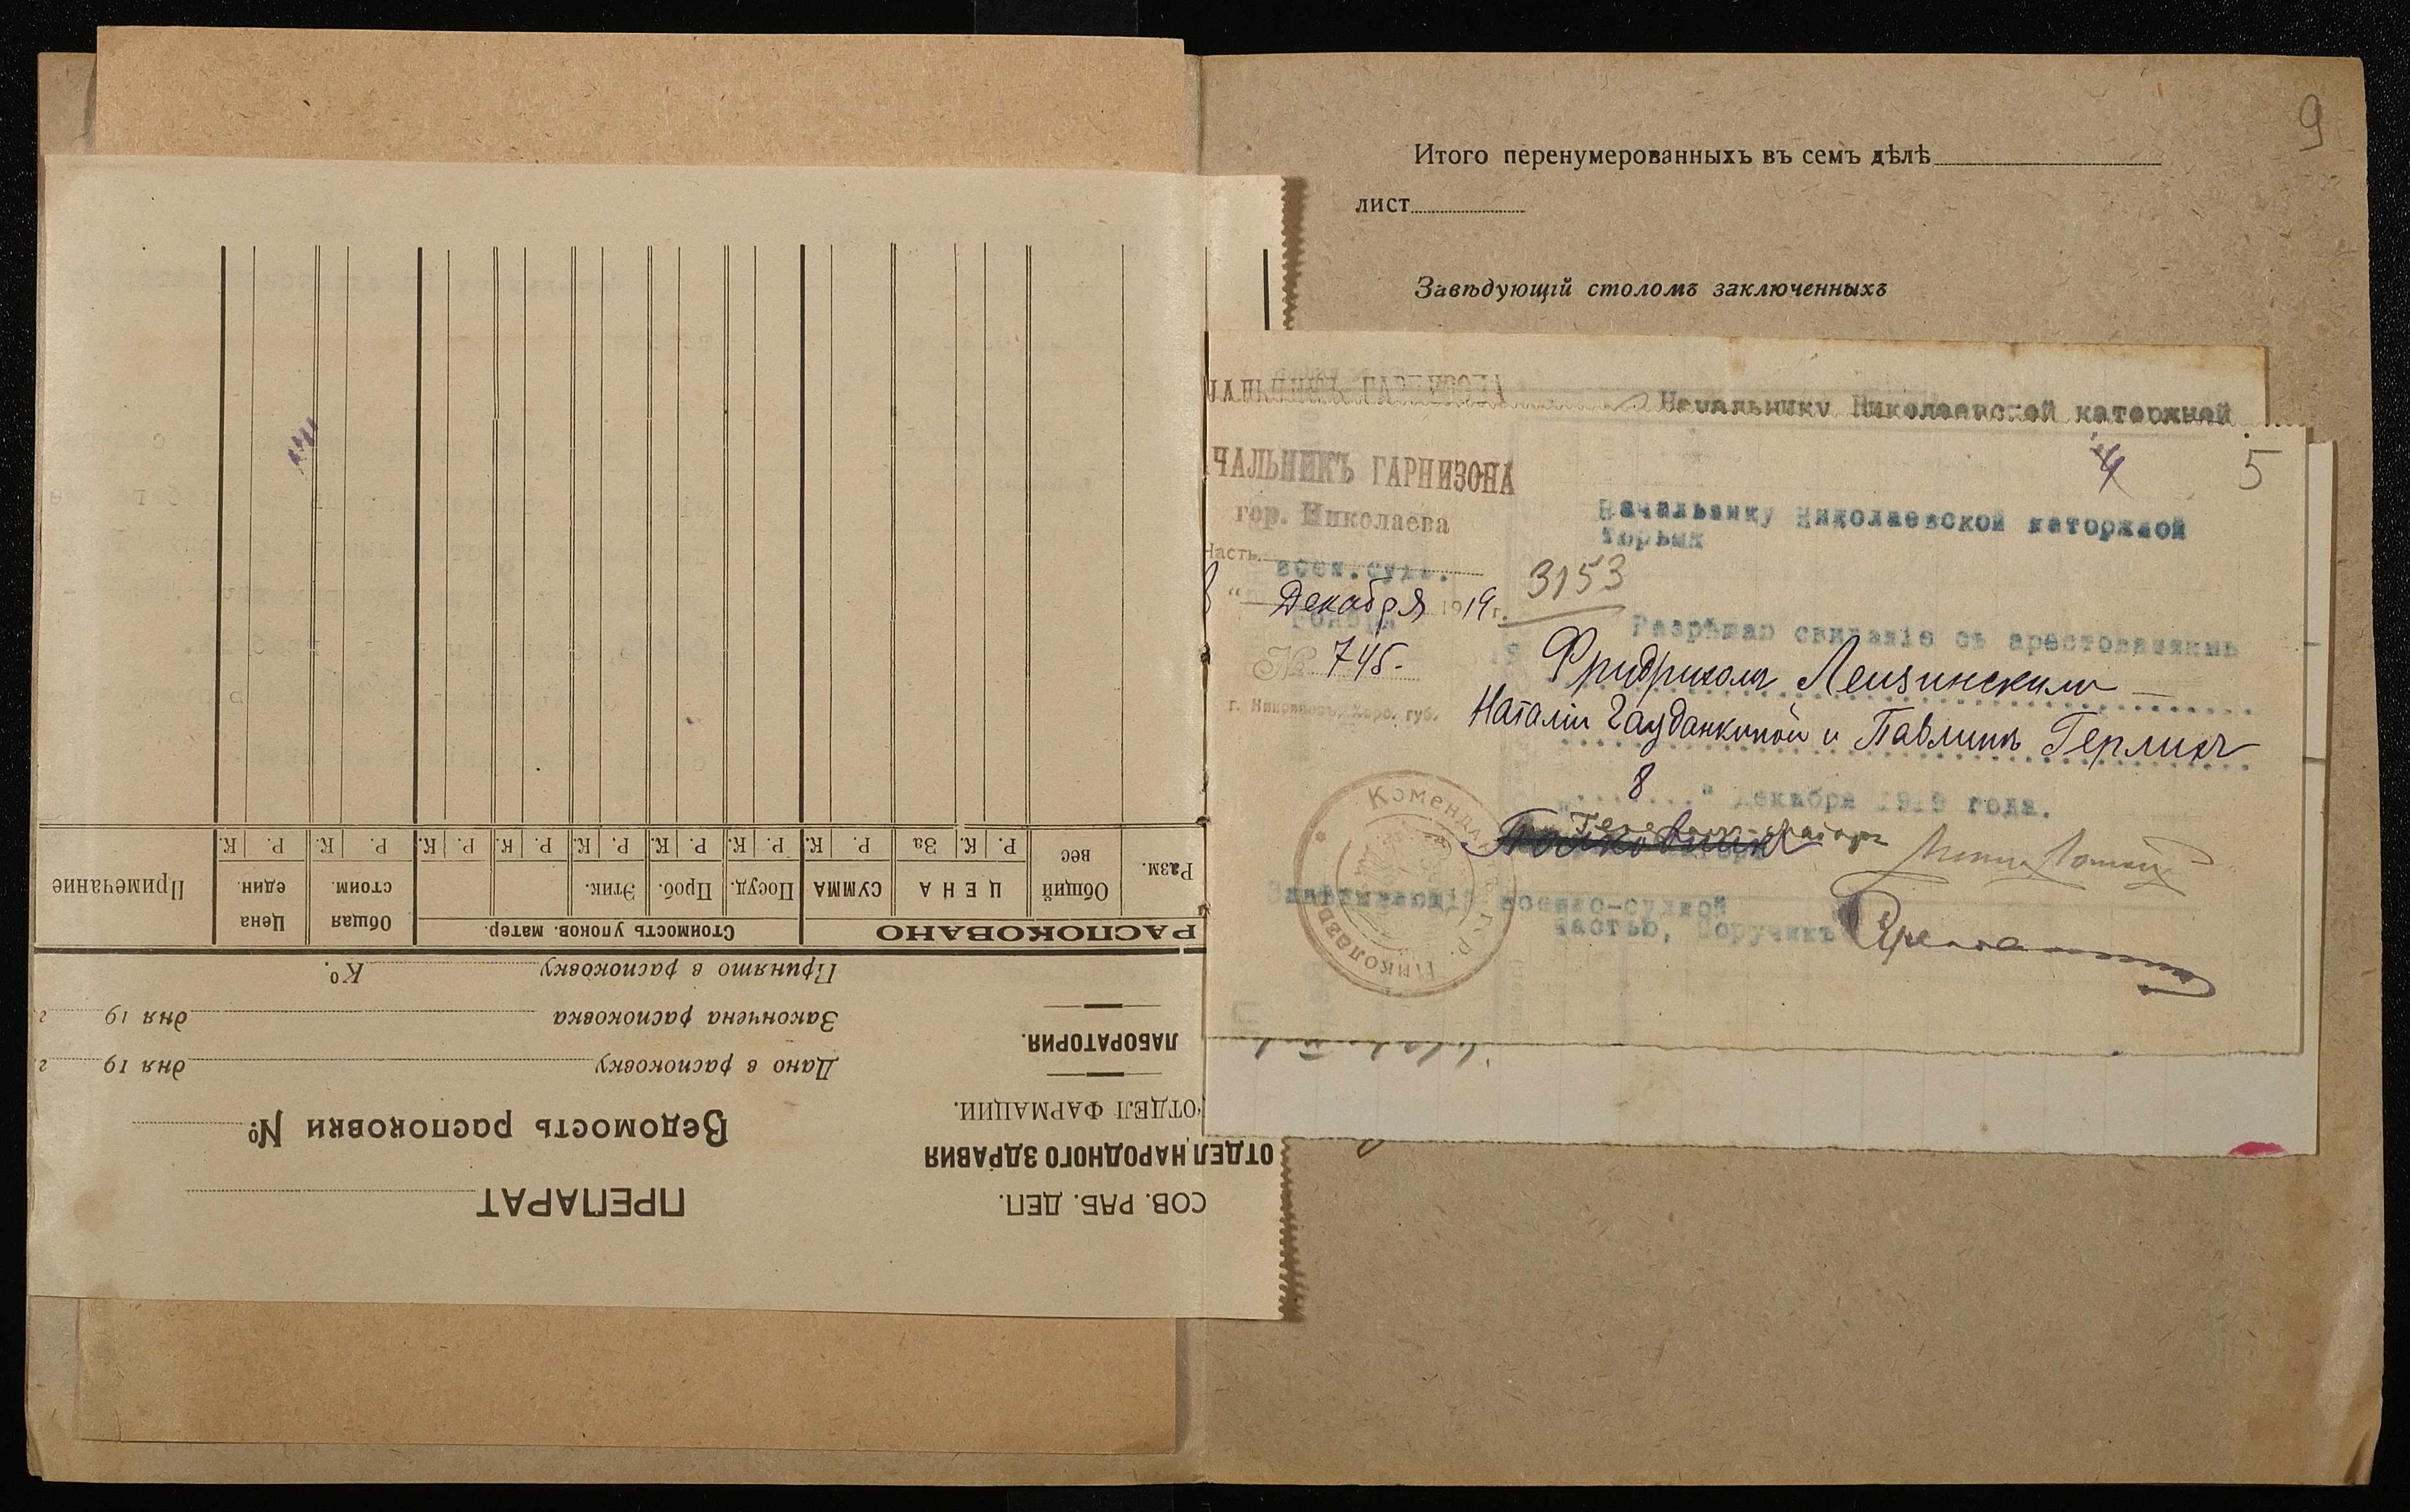 СОВ. РАБ. ДЕП.
ОТДЕЛ НАРОДНОГО ЗДРАВИЯ
ОТДЕЛ ФАРМАЦИИ.
ЛАБОРАТОРИЯ.
ПРЕПАРАТ
Ведомость распоковки №
Дано в распоковку дня 19 г
Закончена распоковка дня 19 г
Принято в распоковку К°.
РАСПОКОВАНО
Стоимость упоков. матер.
Разм. Общий вес ЦЕНА СУММА Посуд. Проб. Этик. Общая стоим. Цена един. Примечание
Р. К. За Р. К. Р. К. Р. К. Р. К. Р. К. Р. К. Р. К.
9
Итого перенумерованныхъ въ семъ дѣлѣ
лист
Завѣдующій столомъ заключенныхъ
Начальнику Николаевской каторжной
4
5
ЧАЛЬНИКЪ ГАРНИЗОНА
гор. Николаева
Часть воен.судн.
8 " Декабря 1919 г.
№ 745.
г. Николаевъ, Херс. губ.
Начальнику Николаевской каторжной
тюрьмы
3153
Разрѣшаю свиданіе съ арестованнымъ
Фридрихомъ Лензинскимъ
Наталіи Гауданкиной и Павлинѣ Герлихъ
" 8 " Декабря 1919 года.
Завѣдывающій военно-судной
частью, Поручикъ